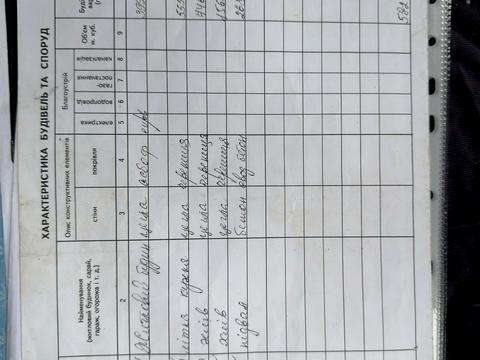 ХАРАКТЕРИСТИКА БУДІВЕЛЬ ТА СПОРУД
Найменування
(житловий будинок, сарай,
гараж, огорожа і т. д.)
Опис конструктивних елементів
стіни
покрівля
Благоустрій
електрика
водопровід
газо-
постачання
каналізація
Об'єм
м. куб.
2 3 4 5 6 7 8 9
житловий будин цегла шифер
літня кухня цегла черепиця
хлів цегла черепиця
хлів цегла черепиця
підвал бетон
582